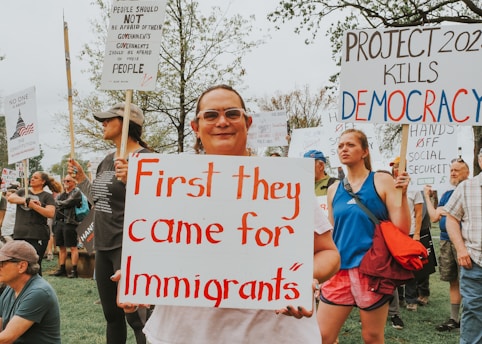 PEOPLE SHOULD
NOT
BE AFRAID OF THEIR
GOVERNMENTS
GOVERNMENTS
SHOULD BE AFRAID
OF THEIR
PEOPLE
PROJECT 202
KILLS
DEMOCRACY
HANDS
OFF
SOCIAL
SECURIT
First they
came for
Immigrants"